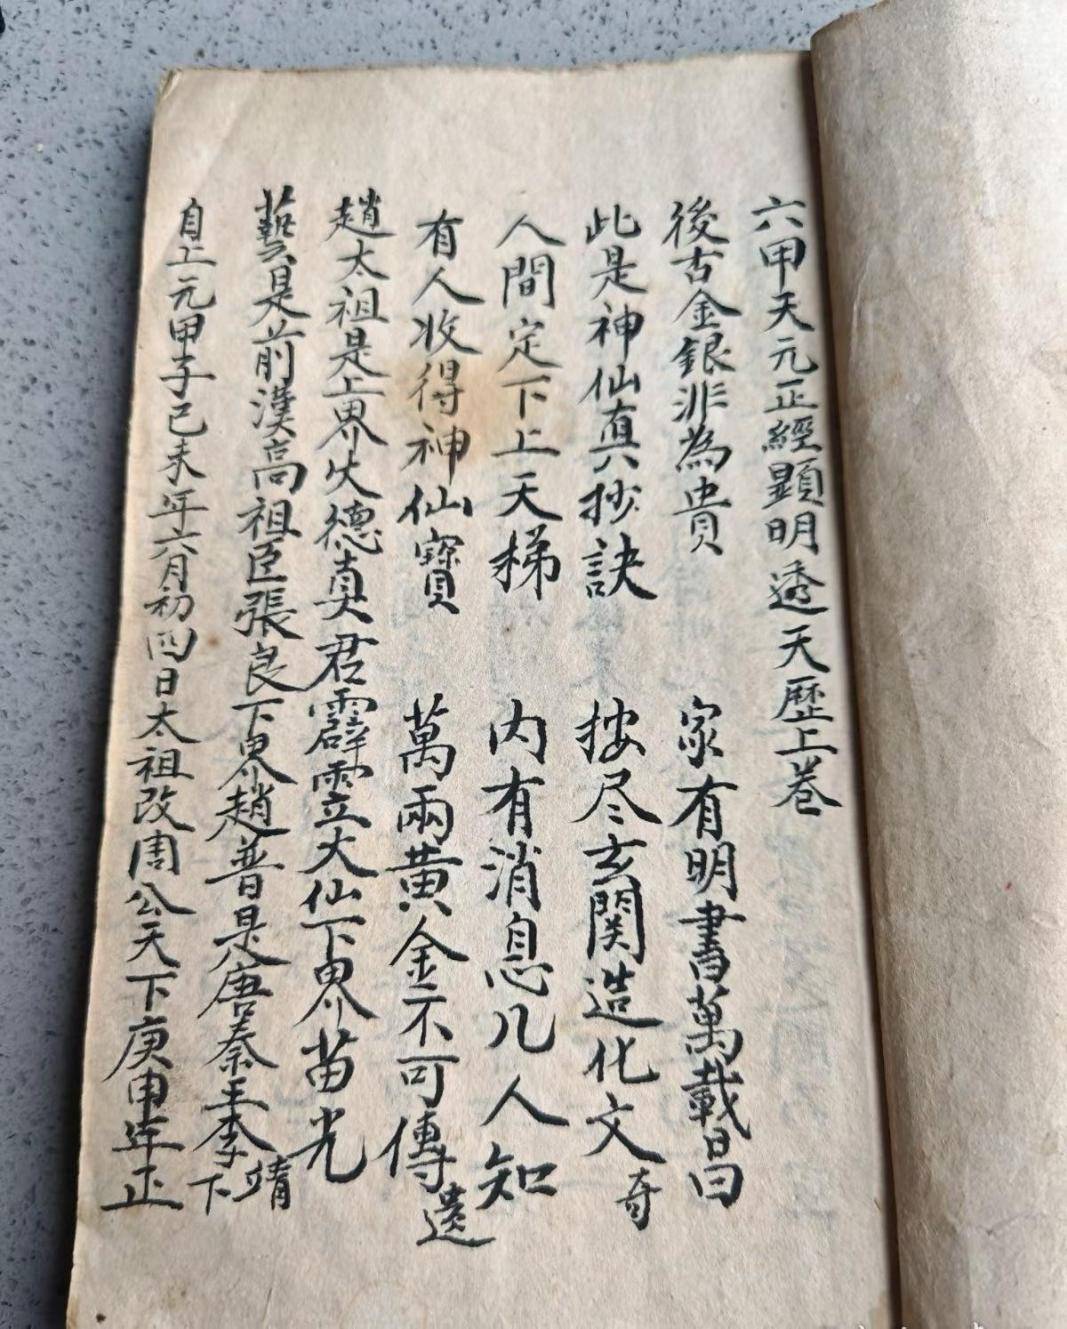 六甲天元正經顯明透天歷上卷
後古金銀非為貴 家有明書萬載昌
此是神仙真抄訣 按尽玄関造化文奇
人間定下上天梯 内有消息几人知
有人收得神仙寶 萬兩黃金不可傳遺
趙太祖是上界火德真君霹靈大仙下界苗光
藝是前漢高祖臣張良下界趙普是唐秦王李靖下
自上元甲子己未年六月初四日太祖改周公天下庚申年正